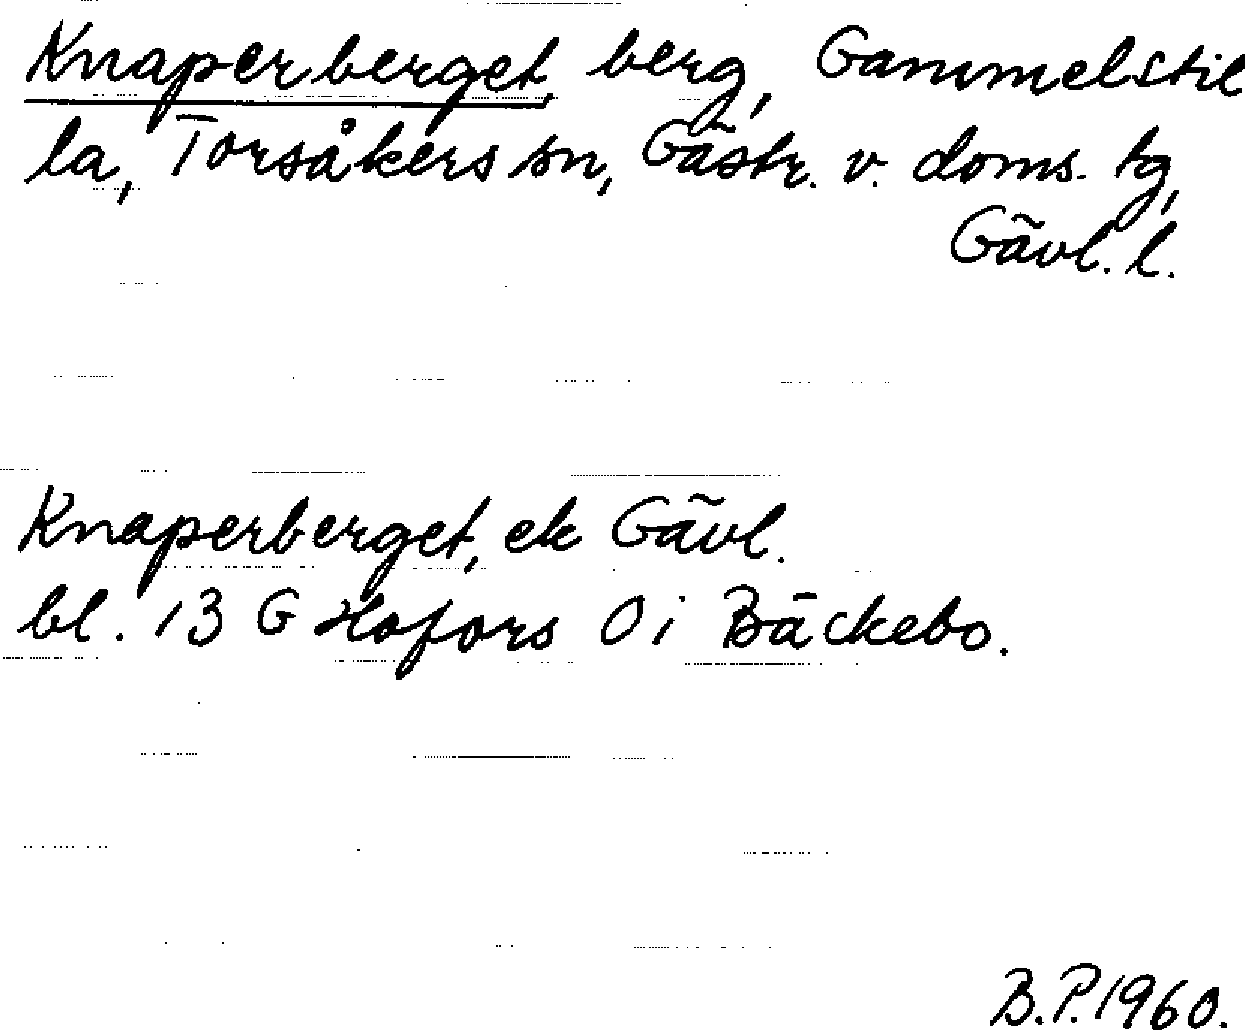 Knaperberget, berg, Gammelstil
la, Torsåkers sn, Gästr. v. doms. tg,
Gävl. l.
Knaperberget, ek Gävl.
bl. 13 G Hofors O i Bäckebo.
B.P. 1960.